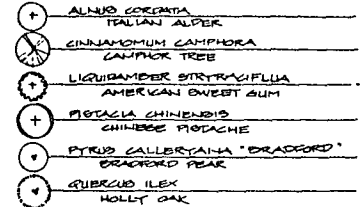 ALNUS CORDATA
ITALIAN ALDER
CINNAMOMUM CAMPHORA
CAMPHOR TREE
LIQUIDAMBER STRYTRACIFLUA
AMERICAN SWEET GUM
PISTACIA CHINENSIS
CHINESE PISTACHE
PYRUS CALLERYAINA "BRADFORD"
BRADFORD PEAR
QUERCUS ILEX
HOLLY OAK